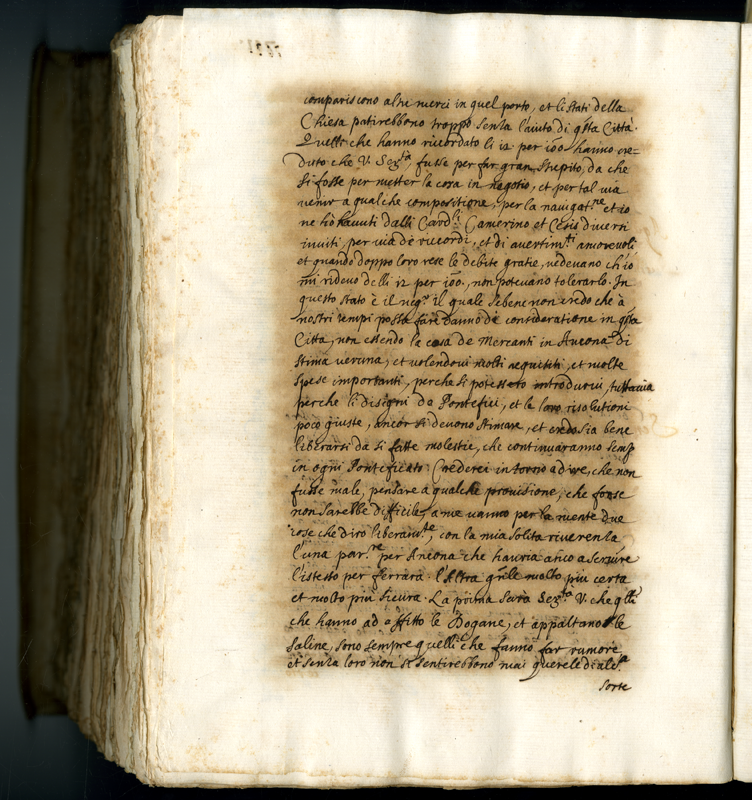 compariscono altre merci in quel porto, et li stati della
Chiesa patirebbono troppo senza l'aiuto di qsta Città.
Quelli che hanno ricordato li 12 per 100 hanno cre=
duto che V. Sertà, fusse per far gran strepito, da che
si fosse per metter la cosa in negotio, et per tal via
venir a qualche compositione, per la navigatne et io
ne hò havuti dalli Cardli Camerino et Cesis diversi
inviti, per via de riccordi, et di avertimti amorevoli
et quando doppo loro rese le debite gratie, vedevano ch'io
mi ridevo delli 12 per 100, non potevano tolerarlo. In
questo stato è il nego il quale sebene non credo che à
nostri tempi possa fare danno de consideratione in qsta
Città, non essendo la casa de Mercanti in Ancona di
stima veruna, et volendovi molti requisiti, et molte
spese importanti, perche si potessero introdurvi, tuttavia
perche li disegni de Pontefici, et le loro risolutioni
poco giuste, ancor si devono stimare, et credo sia bene
liberarsi da si fatte molestie, che continuaranno semp
in ogni Pontificato. Crederei intorno ad cio, che non
fusse male, pensare a qualche provisione, che forse
non sarebbe difficile, a me vanno per la mente due
cose che dirò liberamte, con la mia solita riverenza
l'una parre per Ancona che havria anco a servire
l'istesso per ferrara. l'Altra gnle molto più certa
et molto più sicura. La prima sarà Serma V. che qlli
che hanno ad affitto le Dogane, et appaltano le
saline, sono sempre quelli che fanno far rumore,
et senza loro non si sentirebbono mai querele di alca
sorte